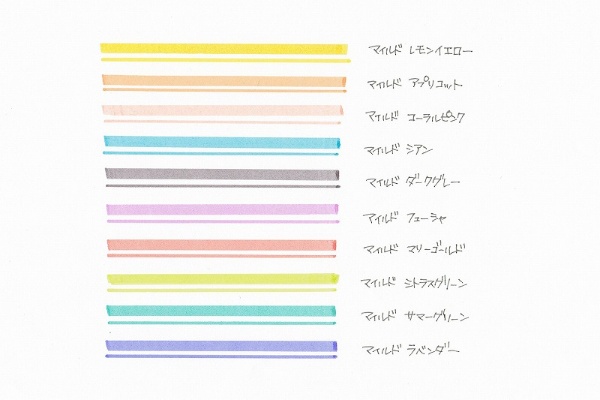 マイルド レモンイエロー
マイルド アプリコット
マイルド コーラルピンク
マイルド シアン
マイルド ダークグレー
マイルド フューシャ
マイルド マリーゴールド
マイルド シトラスグリーン
マイルド サマーグリーン
マイルド ラベンダー